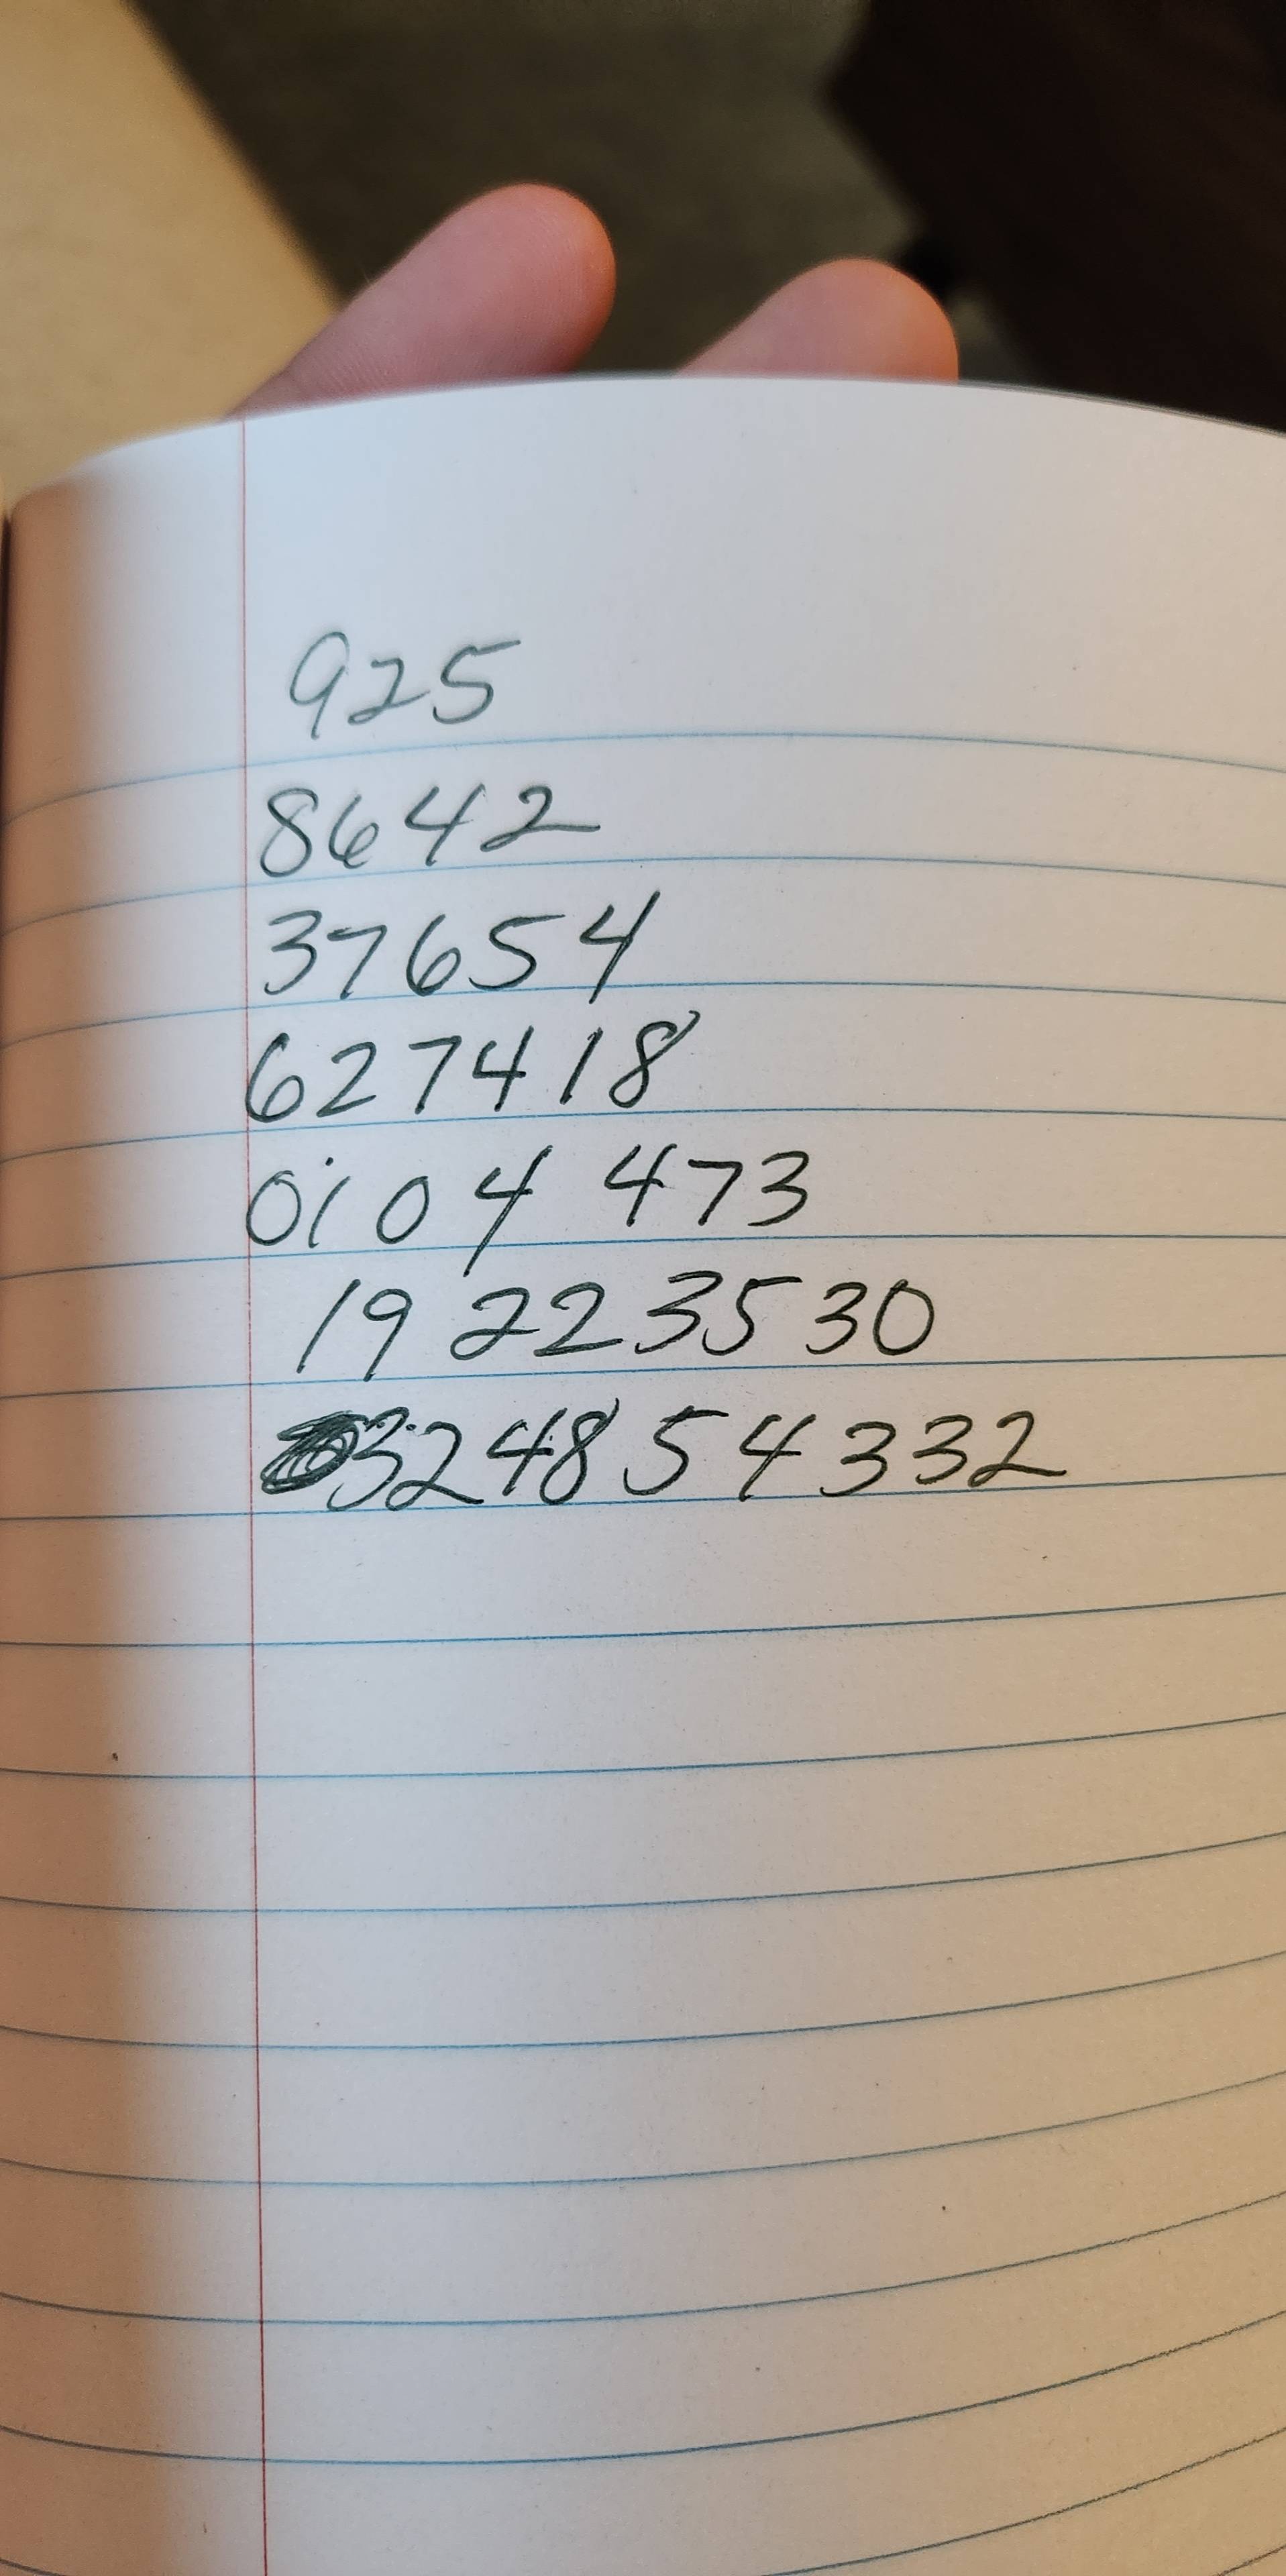 925
8642
37654
627418
0104 473
19 223530
324854332